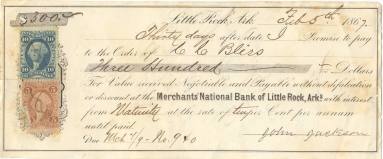 $300.00 Little Rock, Ark Feb 5th 1867
Thirty days after date I Promise to pay
to the Order of C C Bliss
Three Hundred Dollars
For Value received, Negotiable and Payable without defalcation
or discount at the Merchants' National Bank of Little Rock, Arks. with interest
from Maturity at the rate of ten per Cent per annum
until paid.
Due Mch 7/9 - No. 940 John Jackson